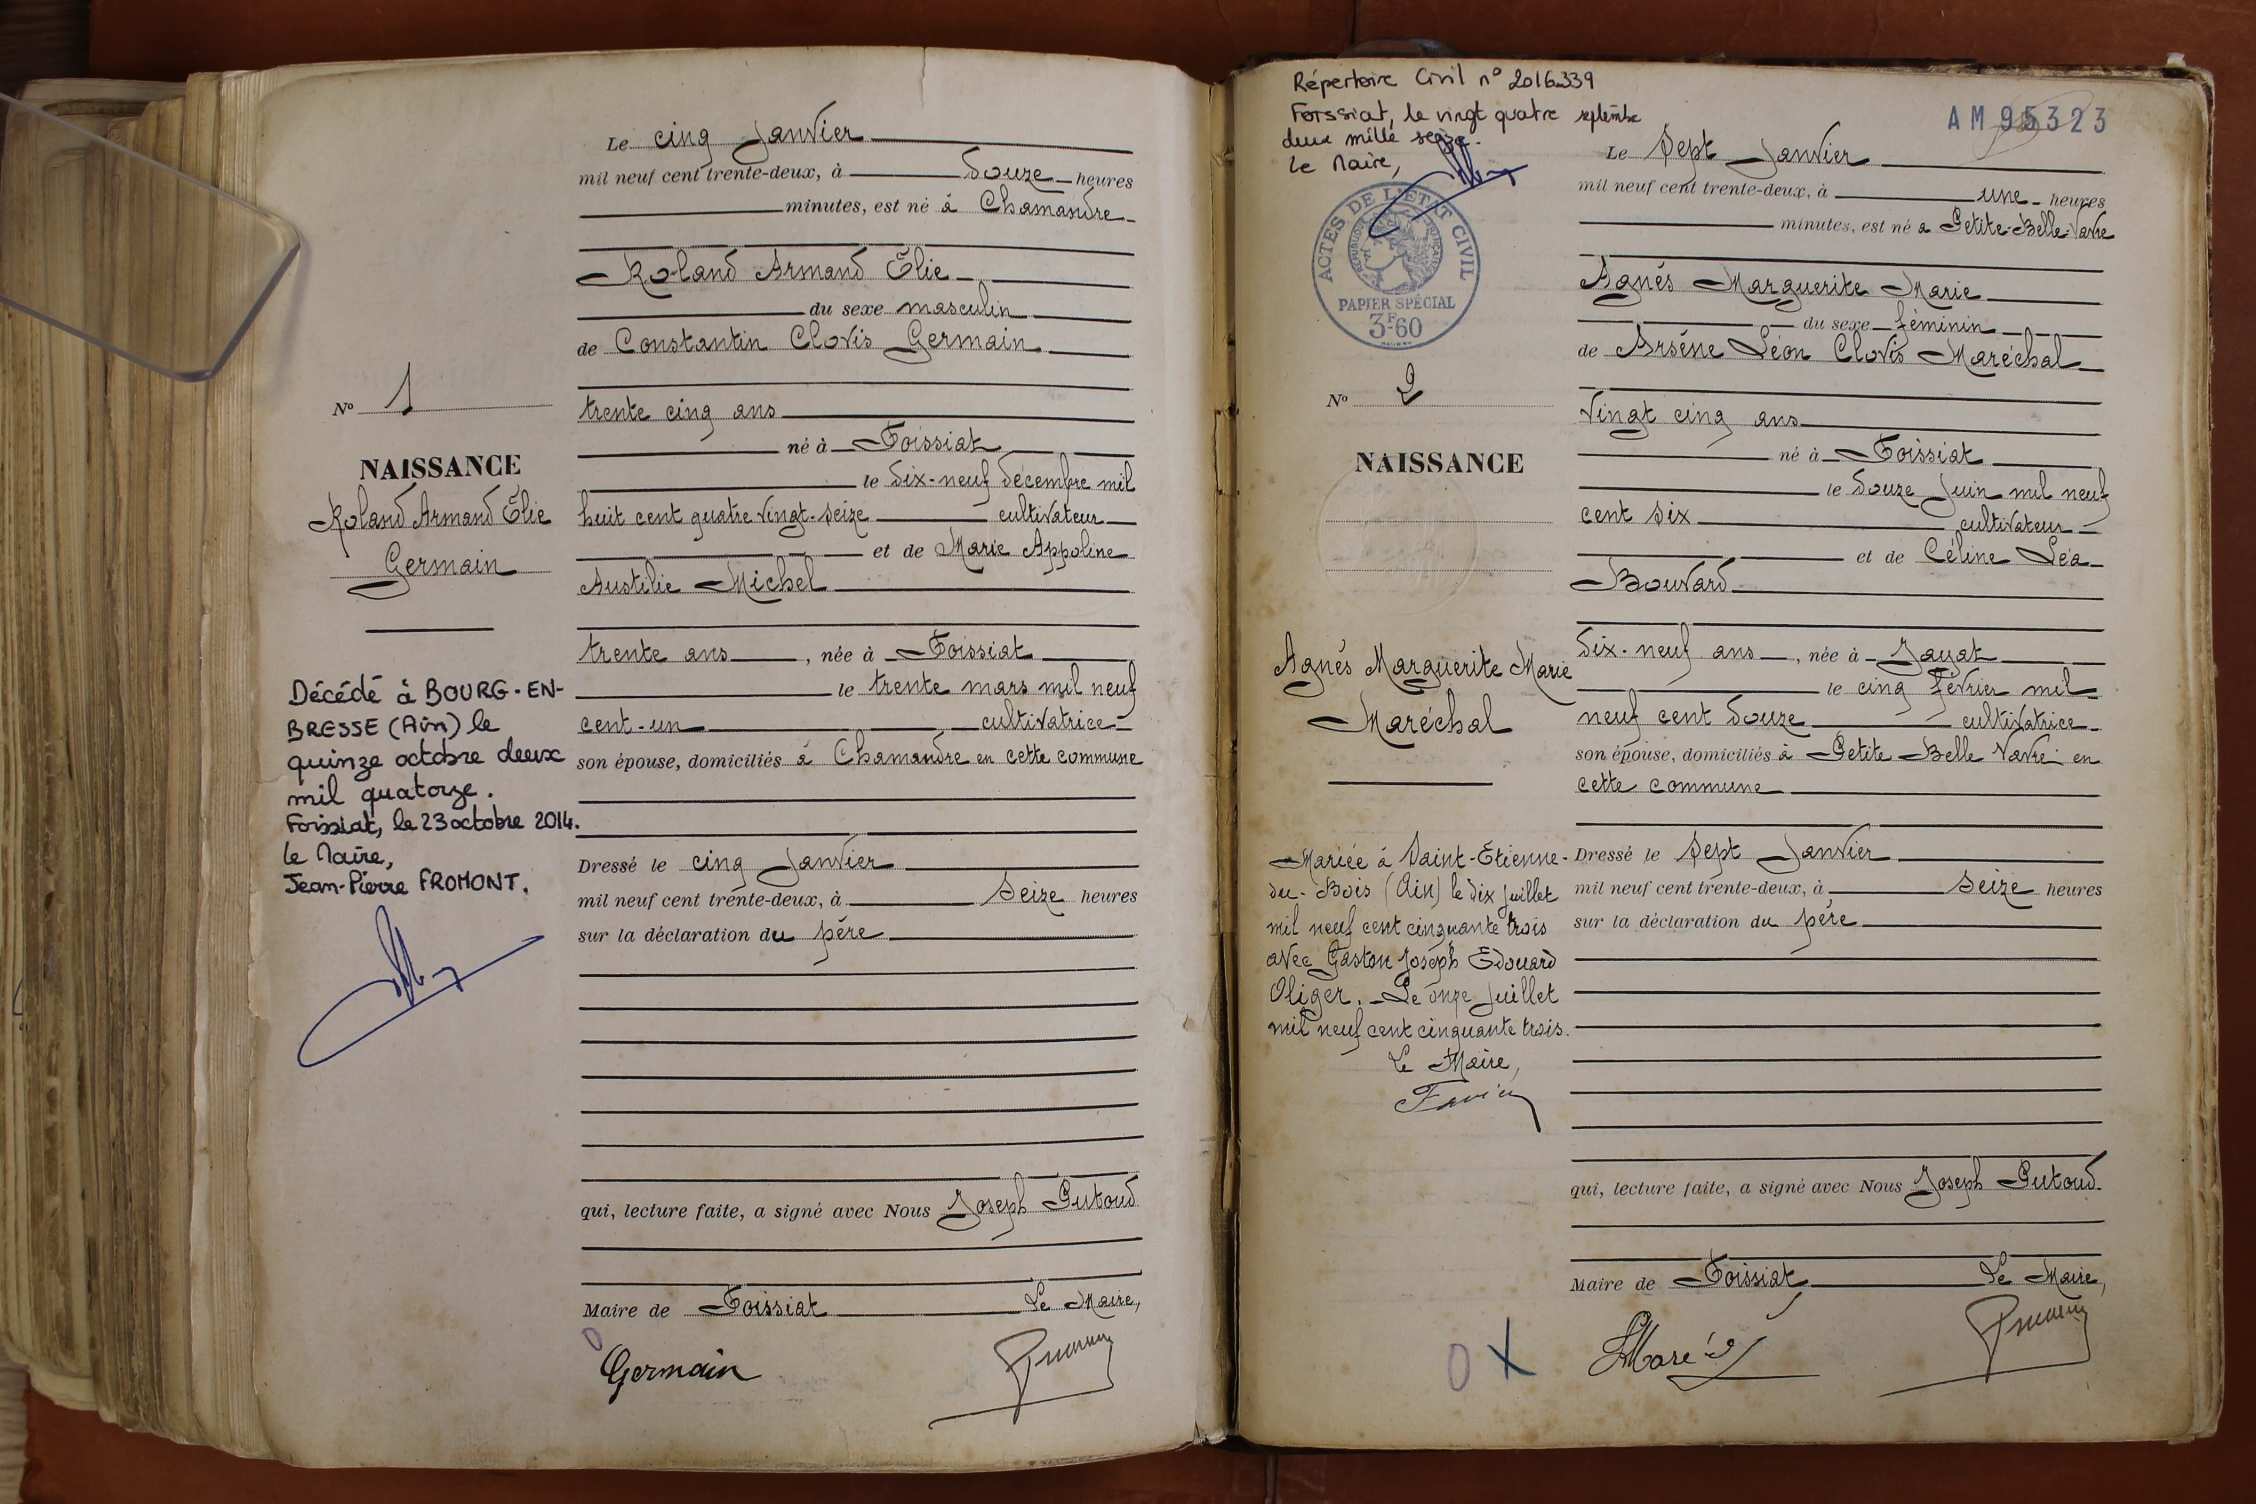 Le cinq Janvier
mil neuf cent trente-deux, à douze heures
minutes, est né à Chamandre
Roland Armand Élie
du sexe masculin
de Constantin Clovis Germain
trente cinq ans
né à Foissiat
le dix-neuf décembre mil
huit cent quatre vingt-seize cultivateur
et de Marie Appoline
Austilie Michel
trente ans, née à Foissiat
le trente mars mil neuf
cent-un cultivatrice
son épouse, domiciliés à Chamandre en cette commune
Dressé le cinq Janvier
mil neuf cent trente-deux, à seize heures
sur la déclaration du père
qui, lecture faite, a signé avec Nous Joseph Putoud
Maire de Foissiat Le Maire,
Germain
N° 1
NAISSANCE
Roland Armand Élie
Germain
Décédé à BOURG-EN-
BRESSE (Ain) le
quinze octobre deux
mil quatorze.
Foissiat, le 23 octobre 2014.
Le Maire,
Jean-Pierre FROMONT.
Répertoire Civil n° 2016-339
Foissiat, le vingt quatre septembre
deux mille seize.
Le Maire,
ACTES DE L'ÉTAT CIVIL
RÉPUBLIQUE FRANÇAISE
PAPIER SPÉCIAL
3F60
N° 2
NAISSANCE
Agnés Marguerite Marie
Maréchal
Mariée à Saint-Etienne-
du-Bois (Ain) le dix juillet
mil neuf cent cinquante trois
avec Gaston Joseph Edouard
Oliger. Le onze juillet
mil neuf cent cinquante trois.
Le Maire,
AM 95323
Le Sept Janvier
mil neuf cent trente-deux, à une heures
minutes, est né à Petite-Belle-Vavre
Agnés Marguerite Marie
du sexe féminin
de Arséne Léon Clovis Maréchal
Vingt cinq ans
né à Foissiat
le douze Juin mil neuf
cent six cultivateur
et de Céline Léa
Bouvard
dix-neuf ans, née à Jayat
le cinq février mil
neuf cent douze cultivatrice
son épouse, domiciliés à Petite Belle Vavre en
cette commune
Dressé le Sept Janvier
mil neuf cent trente-deux, à seize heures
sur la déclaration du père
qui, lecture faite, a signé avec Nous Joseph Putoud
Maire de Foissiat Le Maire,
0 X